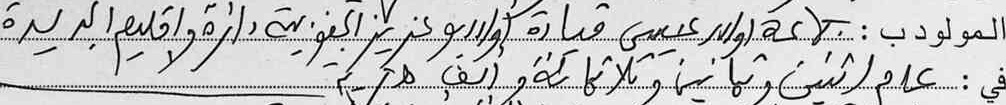 المولود ب: جماعة اولاد عيسى قيادة اولاد بوعزيز الجنوبية دائرة واقليم الجديدة
في: عام اثنين وثمانين وثلاثمائة والف هجرية